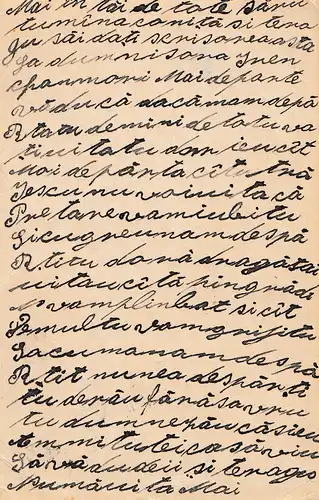 Mai în tăi de tote săru
tumîna conită si te ra
gu săi dați scrisorea asta
La dumnisora Iren
Mai departe
vă ducă dacă mam depă
Rtatu demini de totu va
ti uitatu dar ieu cît
Moi depărta cîtu tră
Iescu nu voi uita că
Pre tare vam iubitu
Si cu greu nam despă
Rtitu do ră dragăstăi
uitaucîta pin grădi
vam plinbat si cît
Pemultu vam grijitu
Sacumanam despă
Rtit nunea despărti
tu de rău fără sa vru
tu dumnepău că sieu
Am mituteica să viu
La vă dudeii si te ragu
Numă uita Mai